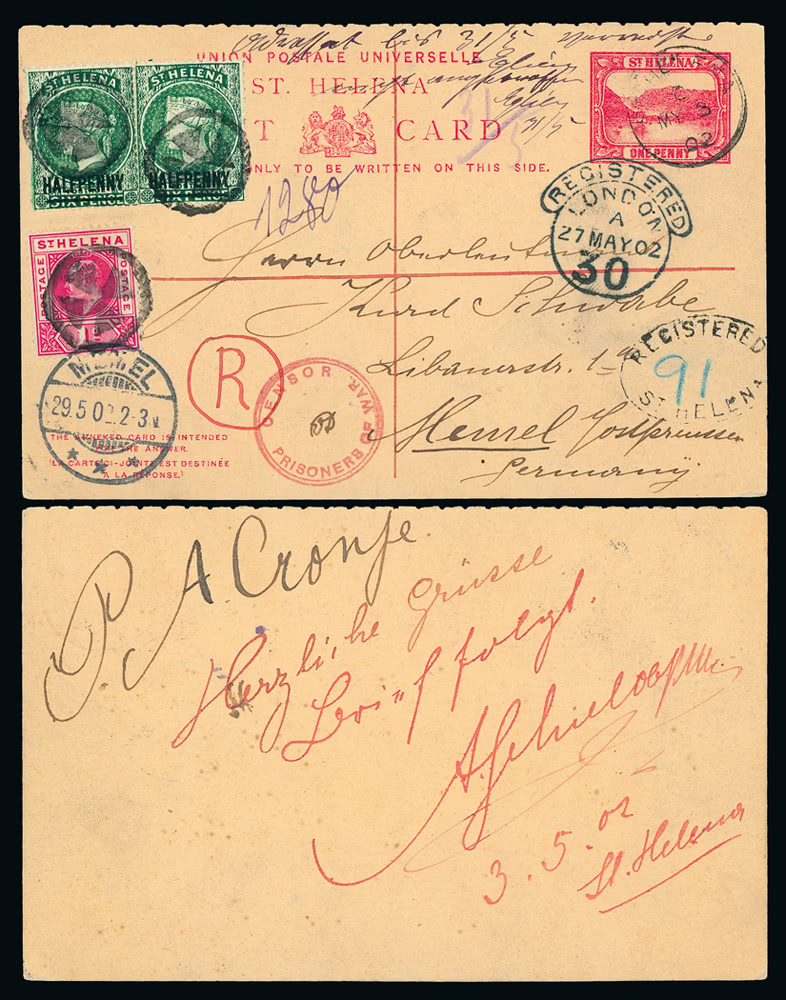 Adressat bis 31/5
UNION POSTALE UNIVERSELLE
ST. HELENA
CARD
ONLY TO BE WRITTEN ON THIS SIDE.
31/5
31/5
ST HELENA
HALFPENNY
SIX PENCE
ST HELENA
HALFPENNY
SIX PENCE
ST HELENA
POSTAGE
POSTAGE
1D
ST HELENA
ONE PENNY
MY 3
02
1280
REGISTERED
LONDON
A
27 MAY 02
30
Herrn Oberleutnant
Kurd Schwabe
Libauerstr. 1
Memel Ostpreussen
Germany
R
CENSOR
PRISONERS OF WAR.
REGISTERED
91
ST HELENA
MEMEL
29.5.02.2-3N
THE ANNEXED CARD IS INTENDED
FOR THE ANSWER.
(LA CARTE CI-JOINTE EST DESTINÉE
À LA RÉPONSE.)
P. A Cronje.
Herzliche Grüsse
Brief folgt.
3.5.02
St. Helena